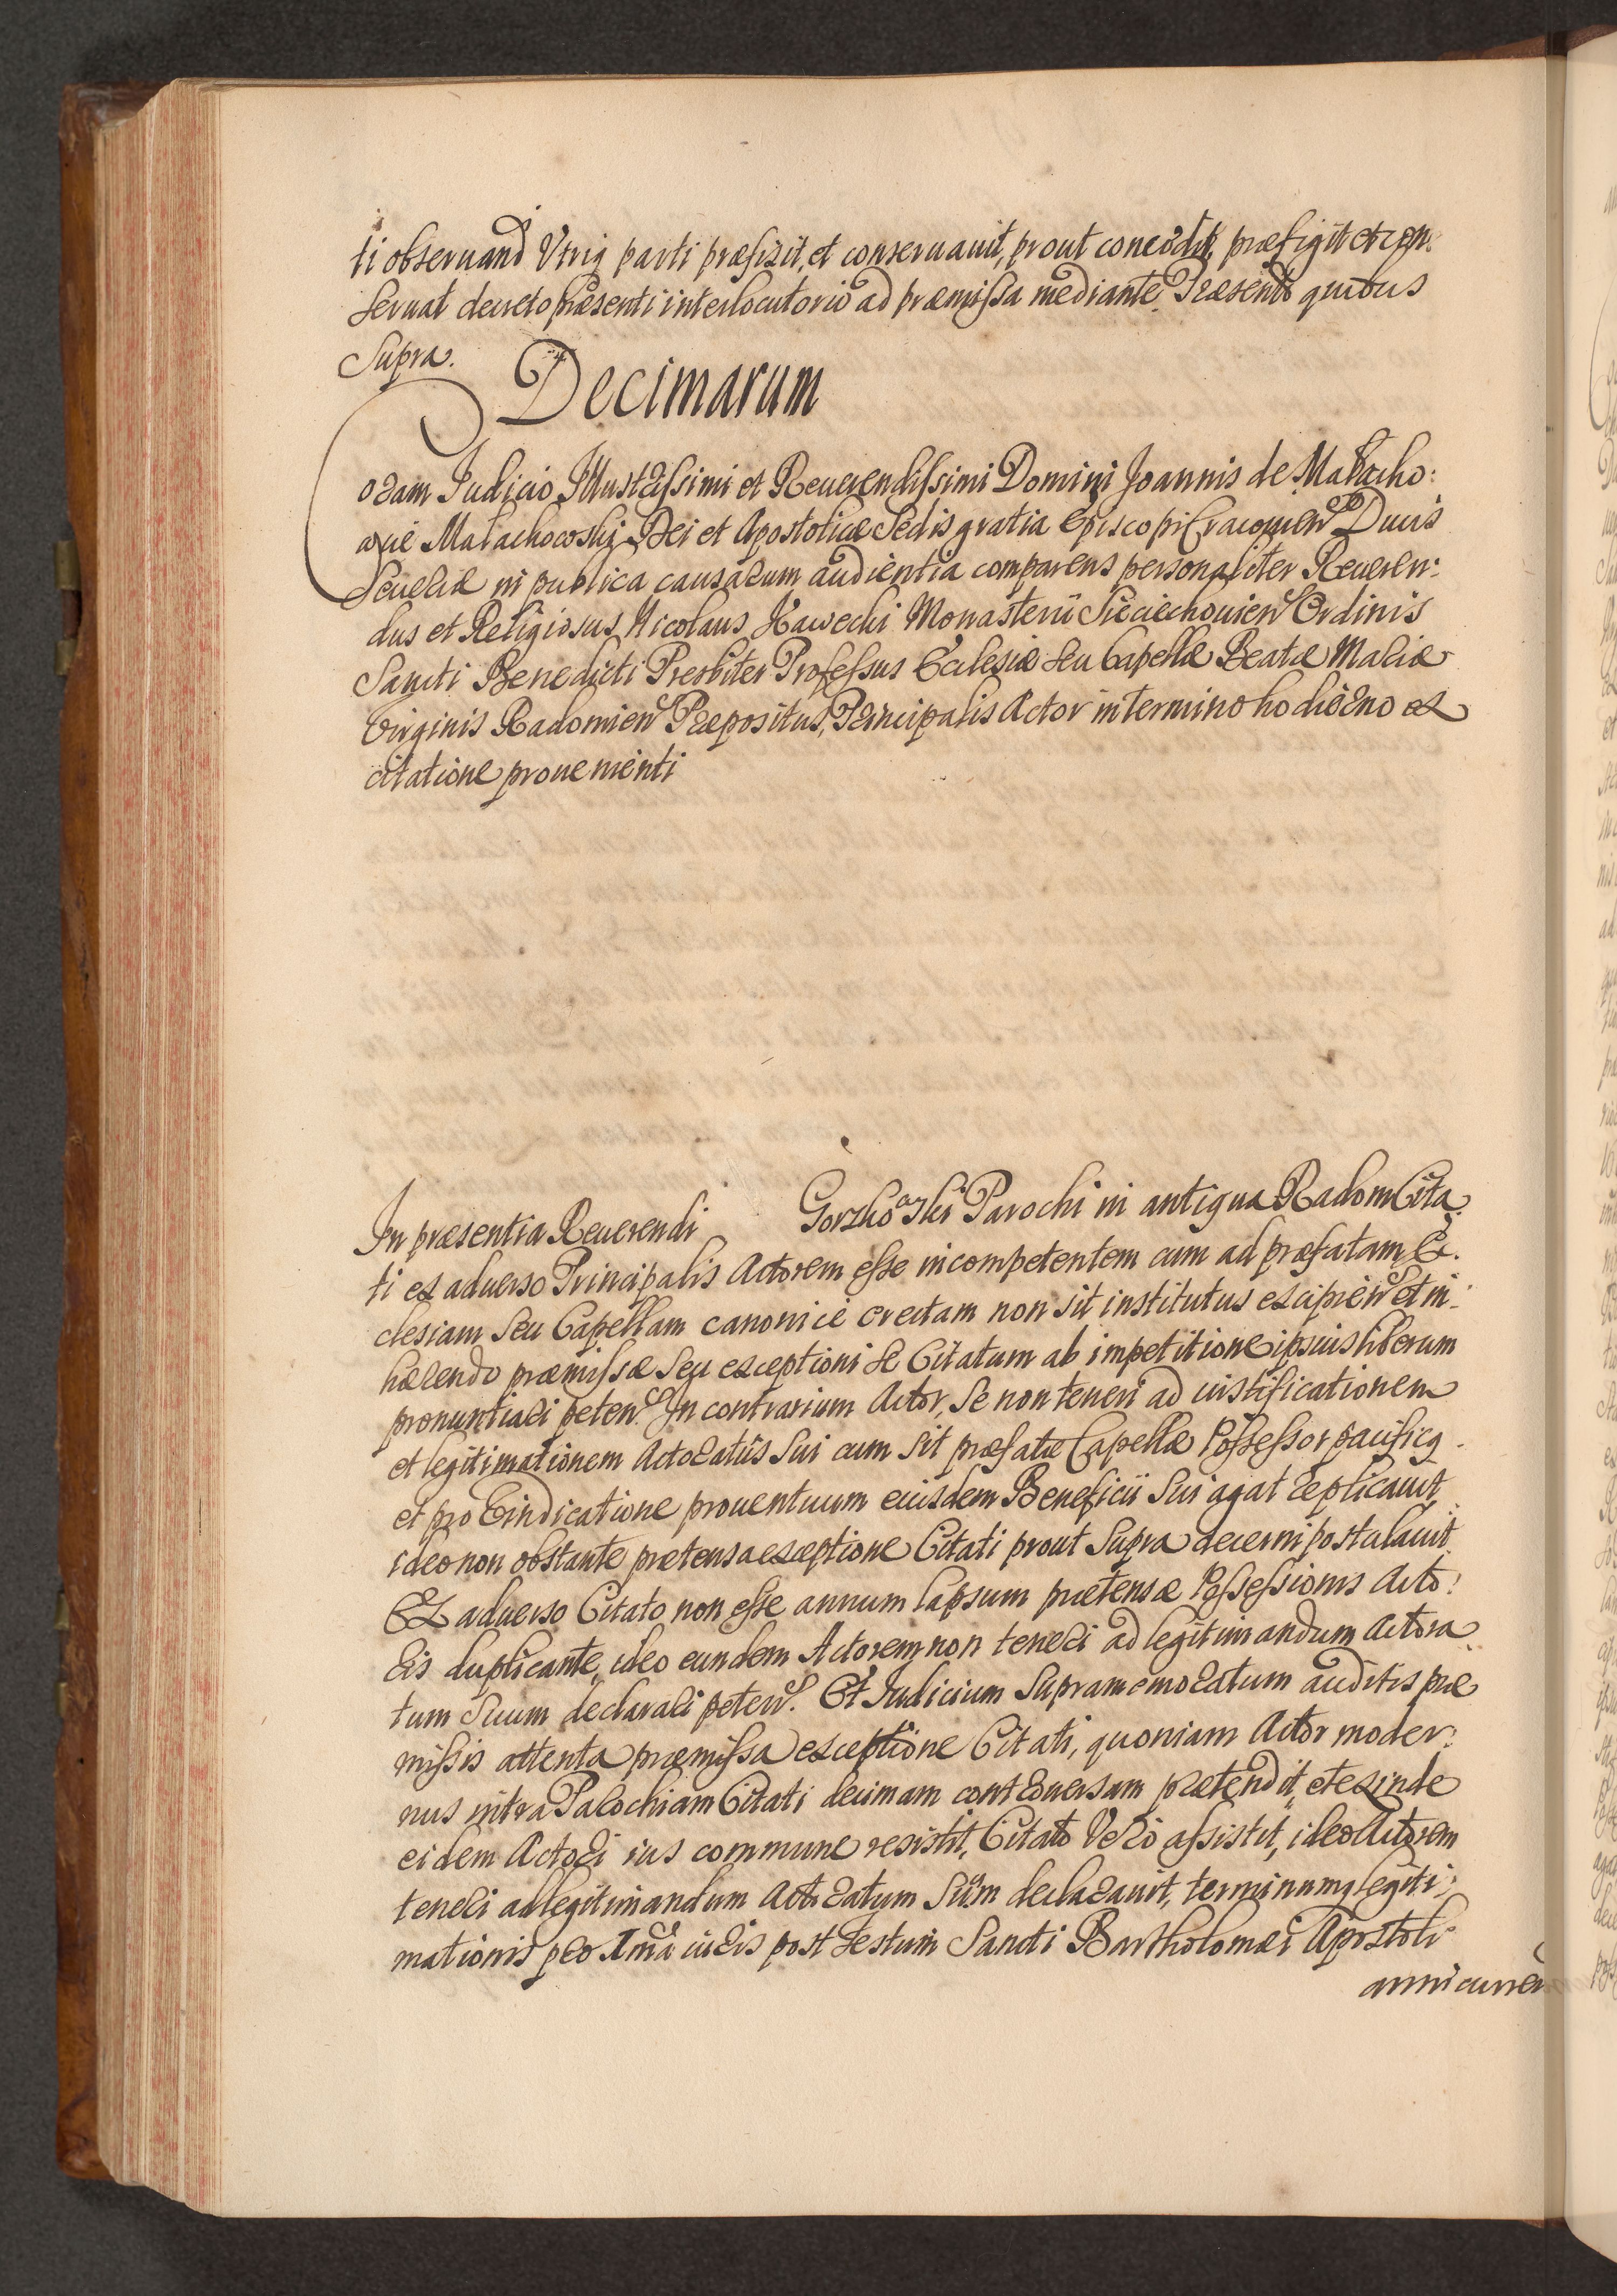 ti obseruand Vtriq parti præfixit, et conseruauit, prout concedit, præfigit et con:
seruat decreto præsenti interlocutorio ad præmissa mediante. Præsentib quibus
Supra.
Decimarum
Coram Iudicio Illustrissimi et Reuerendissimi Domini Joannis de Malacho:
wie Malachowski Dei et Apostolicæ Sedis gratia Episcopi Cracouien Ducis
Seueriæ in publica causarum audientia comparens personaliter Reueren:
dus et Religiosus Nicolaus Kawecki Monasterii Sieciechouien Ordinis
Sancti Benedicti Presbiter Professus Ecclesiæ seu Capellæ Beatæ Mariæ
Virginis Radomien Præpositus, Principalis Actor in termino hodierno ex
citatione prouenienti
In præsentia Reuerendi Gorzkowski Parochi in antiqua Radom Cita:
ti ex aduerso Principalis Actorem esse incompetentem cum ad præfatam Ec:
clesiam seu Capellam canonicè erectam non sit institutus excipien et in:
hærendo præmissæ seu exceptioni se Citatum ab impetitione ipsius liberum
pronuntiari peten. In contrarium Actor, se non teneri ad iustificationem
et legitimationem Actoratus sui cum sit præfatæ Capellæ Possessor pacificq
et pro Vindicatione prouentuum eiusdem Beneficii sui agat replicauit,
ideo non obstante prætensa exceptione Citati prout supra decerni postulauit.
Ex aduerso Citato non esse annum lapsum prætensæ Possessionis Acto:
ris duplicante, ideo eundem Actorem non teneri ad legitimandum Actora:
tum suum declarari peten. Et Iudicium supramemoratum auditis præ
missis attenta præmissa exceptione Citati, quoniam Actor moder:
nus intra Parochiam Citati decimam controuersam prætendit, et exinde
eidem Actori ius commune resistit, Citato Vero assistit, ideo Actorem
teneri ad legitimandum Actoratum Suum declarauit, terminumq legiti:
mationis pro Ima iuris post Festum Sancti Bartholomæi Apostoli
anni curren